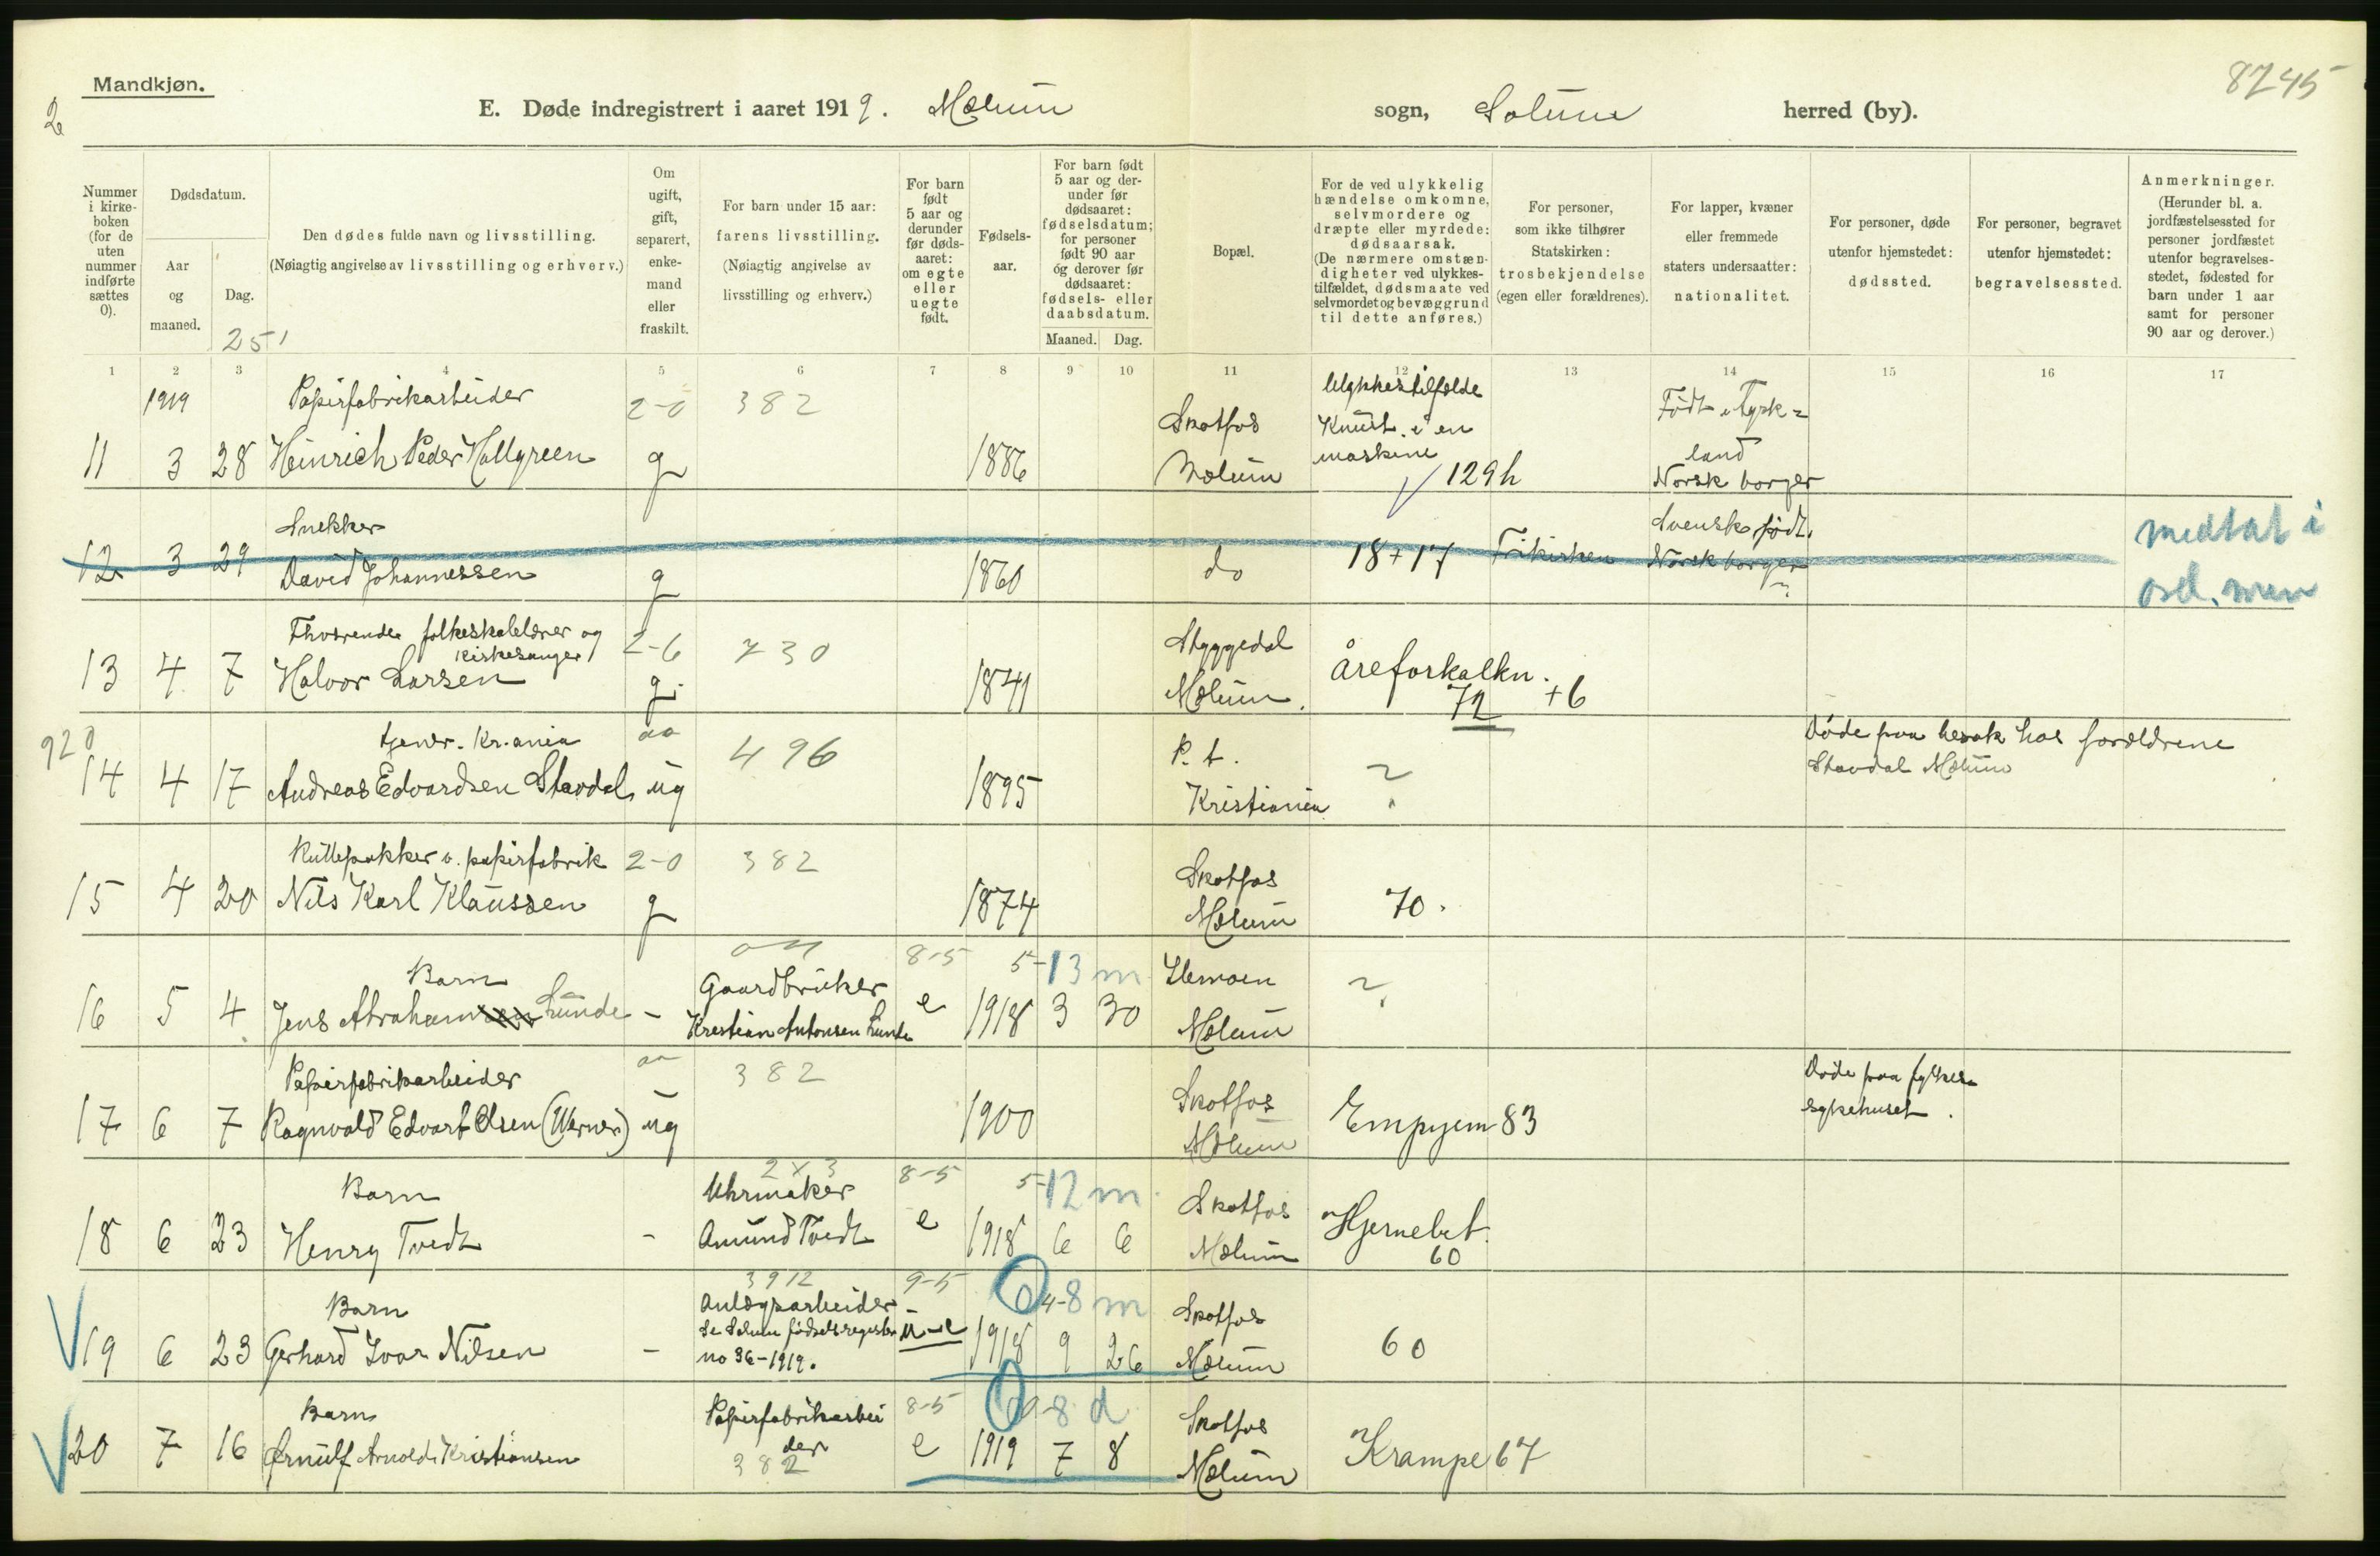 Mandkjøn.
8245
2
E. Døde indregistrert i aaret 1919. Melum sogn, Solum herred (by).
Nummer i kirkeboken (for de uten nummer indførte sættes 0).
Dødsdatum.
Aar og maaned.
Dag.
251
Den dødes fulde navn og livsstilling.
(Nøiagtig angivelse av livsstilling og erhverv.)
Om ugift, gift, separert, enkemand eller fraskilt.
For barn under 15 aar: farens livsstilling.
(Nøiagtig angivelse av livsstilling og erhverv.)
For barn født 5 aar og derunder før dødsaaret: om egte eller uegte født.
Fødselsaar.
For barn født 5 aar og derunder før dødsaaret: fødselsdatum; for personer født 90 aar og derover før dødsaaret: fødsels- eller daabsdatum.
Maaned. Dag.
Bopæl.
For de ved ulykkelig hændelse omkomne, selvmordere og dræpte eller myrdede: dødsaarsak.
(De nærmere omstændigheter ved ulykkestilfældet, dødsmaate ved selvmordet og bevæggrund til dette anføres.)
For personer, som ikke tilhører Statskirken: trosbekjendelse (egen eller forældrenes).
For lapper, kvæner eller fremmede staters undersaatter: nationalitet.
For personer, døde utenfor hjemstedet: dødssted.
For personer, begravet utenfor hjemstedet: begravelsessted.
Anmerkninger.
(Herunder bl. a. jordfæstelsessted for personer jordfæstet utenfor begravelsesstedet, fødested for barn under 1 aar samt for personer 90 aar og derover.)
1 2 3 4 5 6 7 8 9 10 11 12 13 14 15 16 17
1919 Papirfabrikarbeider 2-0 382 Skotfos Ulykkestilfelde Født i Tysk=
Knust i en land
maskine
11 3 28 Heinrich Peder Hallgreen g 1886 Melum 129h Norsk borger
Snekker Svensk født. medtat i
12 3 29 David Johannessen g 1860 do 18+17 Frikirken Norsk borger
osd. men
Fhværende folkeskolelærer og 2-6 730 Styggedal
kirkesanger
13 4 7 Halvor Larsen g. 1841 Melum. åreforkalkn. 72 +6
920 tjener. Kr.ania 496 P. t. Døde paa besøk hos forældrene
Stavdal Melum
14 4 17 Andreas Edvardsen Stavdal ug 1895 Kristiania ?
Rullepakker v. papirfabrik 2-0 382 Skotfos
15 4 20 Nils Karl Klaussen g 1874 Melum 70.
Barn Gaardbruker 8-5 5-13 m
16 5 4 Jens Abraham Lunde - Kristian Antonsen Lunde e 1918 3 30 Melum ?
Papirfabrikarbeider 382 Skotfos Døde paa fylkes
sykehuset.
17 6 7 Ragnvald Edvart Olsen (Werner) ug 1900 Melum Empyem 83
Barn 2x3 Uhrmaker 8-5 5-12 m Skotfos
18 6 23 Henry Tvedt - Amund Tvedt e 1918 6 6 Melum Hjernebet. 60
Barn 3912 Anlægsarbeider 9-5 0 4-8 m Skotfos
Se Solum fødselsregister u-e
19 6 23 Gerhard Ivar Nilsen - no 36-1919. 1918 9 26 Melum 60
Barn Papirfabrikarbei 8-5 0 0-8 d Skotfos
der
20 7 16 Ørnulf Arnold Kristiansen 382 e 1919 7 8 Melum Krampe 67